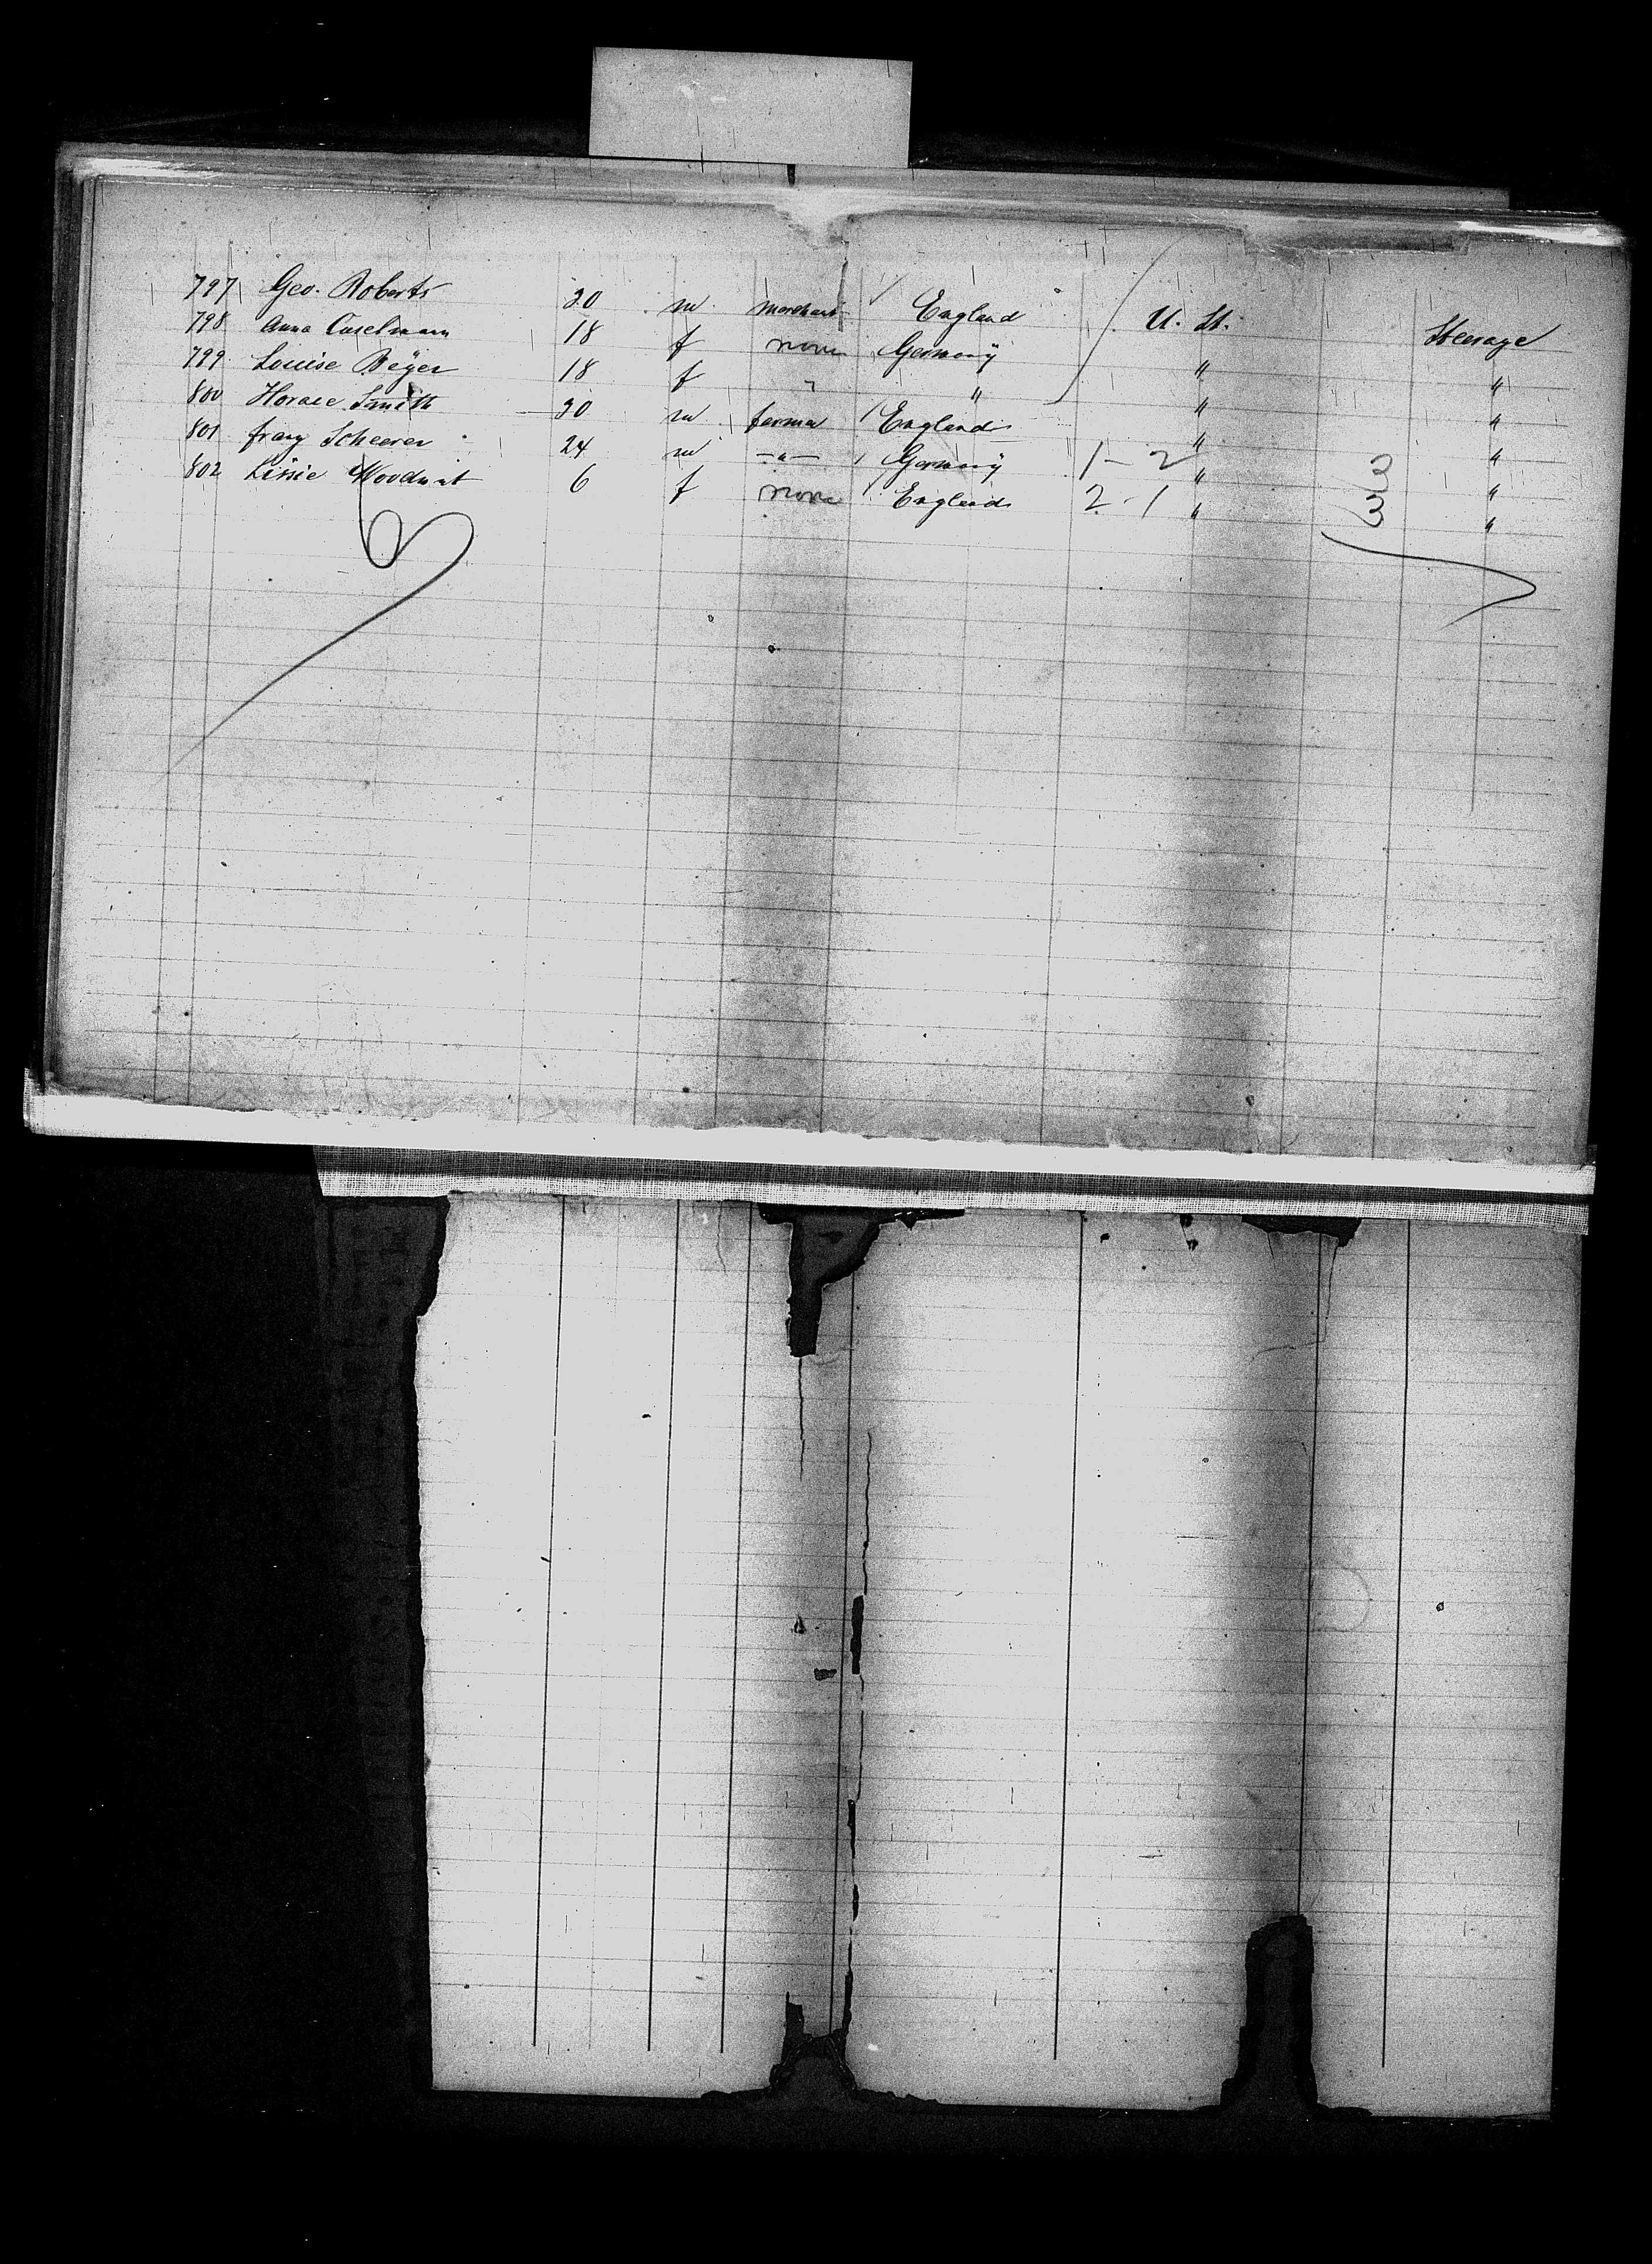 797 Geo. Roberts 20 m merchant England U. St. Steerage
798 Anna Caselmann 18 f none Germany " "
799 Louise Beyer 18 f " " " "
800 Horace Smith 20 m farmer England " "
801 franz Scheerer 24 m —"— Germany 1 - 2 " "
802 Lissie 6 f none England 2 - 1 " 3 3 "
6